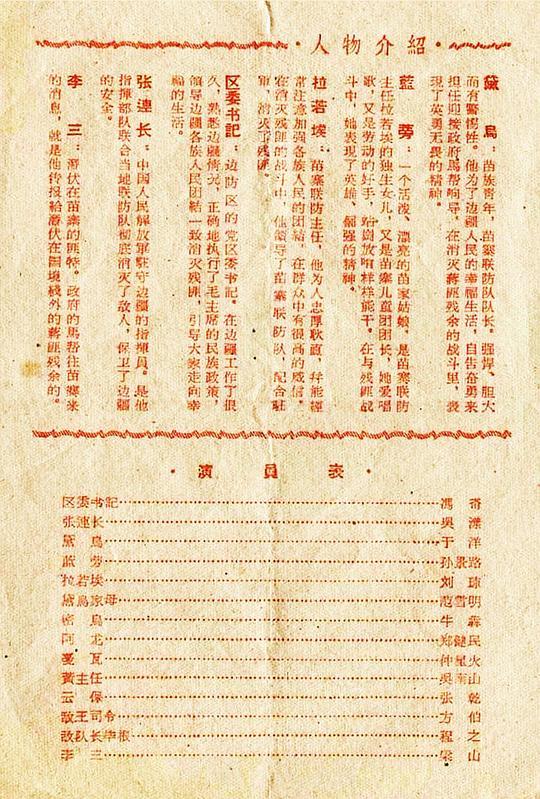 ·人物介紹·
黛 烏:苗族青年,苗寨联防队队长。强悍、胆大
而有警惕性。他为了边疆人民的幸福生活,自告奋勇来
担任迎接政府馬帮响导,在消灭蔣匪残余的战斗里,表
現了英勇无畏的精神。
藍 蒡:一个活泼、漂亮的苗家姑娘,是苗寨联防
主任拉若埃的独生女儿,又是苗寨儿童团团长,她爱唱
歌,又是劳动的好手,站崗放哨样样能干。在与残匪战
斗中,她表現了英雄、倔强的精神。
拉若埃:苗寨联防主任,他为人忠厚耿直,并能經
常注意加强各族人民的团結,在群众中有很高的威信。
在消灭残匪的战斗中,他領导了苗寨联防队,配合駐
軍,消灭了残匪。
区委书記:边防区的党区委书記。在边疆工作了很
久,熟悉边疆情况,正确地执行了毛主席的民族政策,
領导边疆各族人民团結一致消灭残匪,引导大家走向幸
福的生活。
张連长:中国人民解放軍駐守边疆的指揮員。是他
指揮部队联合当地联防队彻底消灭了敌人,保卫了边疆
的安全。
李 三:潛伏在苗寨的匪特。政府的馬帮往苗寨来
的消息,就是他傳报給潛伏在国境綫外的蔣匪残余的。
·演員表·
区委书記……馮 奇
张連长……吳
黛 烏……于 洋
蓝……孙景路
拉若埃……刘 琼
黛烏家母……范雪明
密 烏……牛 犇
阿 尤……郑健民
戛 瓦……仲星火
黃主任……吳南山
云 保……张 乾
敌王司令……方 伯
敌队长……程 之
李 三……梁 山